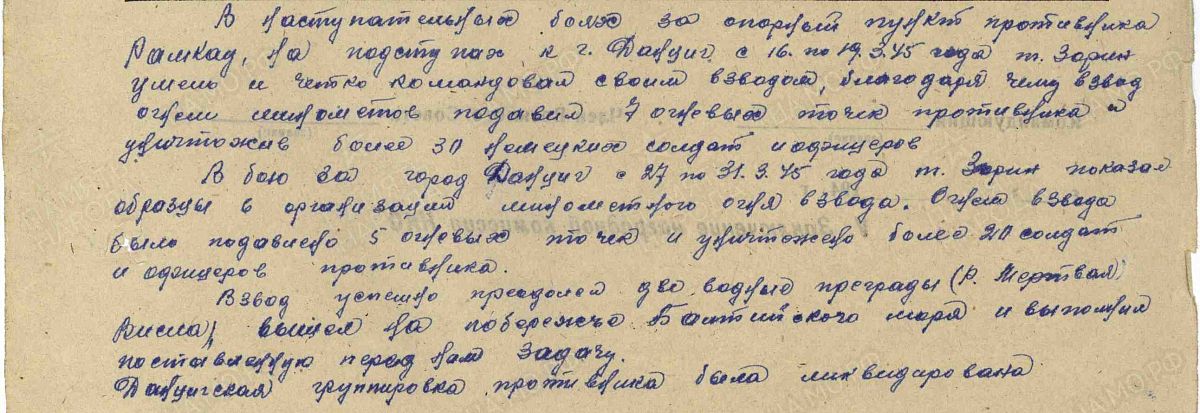 В наступательных боях за опорный пункт противника
Рамкау, на подступах к г. Данциг с 16. по 19.3.45 года т. Зорин
умело и четко командовал своим взводом, благодаря чему взвод
огнем минометов подавил 7 огневых точек противника и
уничтожив более 30 немецких солдат и офицеров
В бою за город Данциг с 27 по 31.3.45 года т. Зорин показал
образцы в организации минометного огня взвода. Огнем взвода
было подавлено 5 огневых точек и уничтожено более 20 солдат
и офицеров противника.
Взвод успешно преодолел две водные преграды (р. Мертвая
Висла), вышел на побережье Балтийского моря и выполнил
поставленную перед ним задачу.
Данцигская группировка противника была ликвидирована